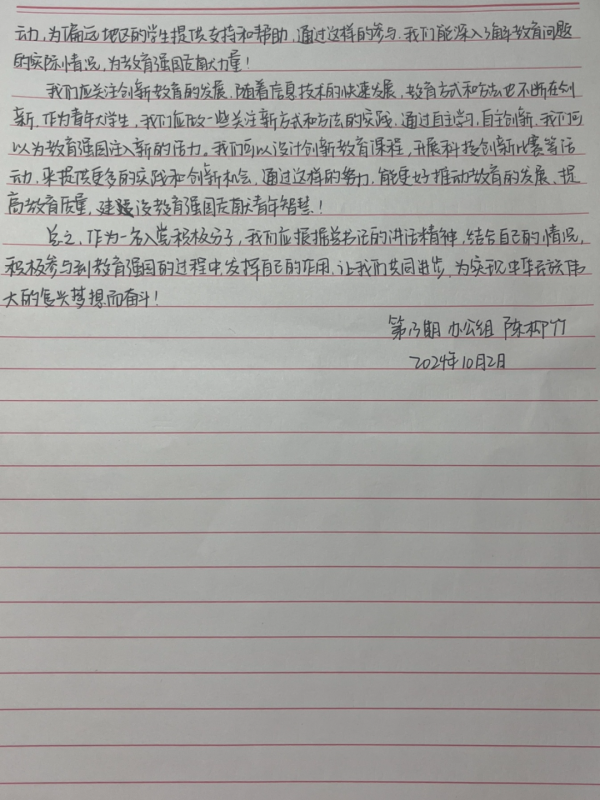 动,为偏远地区的学生提供支持和帮助,通过这样的参与,我们能深入了解教育问题
的实际情况,为教育强国贡献力量!
我们应关注创新教育的发展,随着信息技术的快速发展,教育方式和方法也不断在创
新,作为青年大学生,我们应做一些关注新方式和方法的实践,通过自主学习,自主创新,我们可
以为教育强国注入新的活力。我们可以设计创新教育课程,开展科技创新比赛等活
动,来提供更多的实践和创新机会,通过这样的努力,能更好推动教育的发展,提
高教育质量,建设教育强国贡献青年智慧!
总之,作为一名入党积极分子,我们应根据总书记的讲话精神,结合自己的情况,
积极参与到教育强国的过程中发挥自己的作用,让我们共同进步,为实现中华民族伟
大的复兴梦想而奋斗!
第13期 办公组 陈柳竹
2024年10月2日